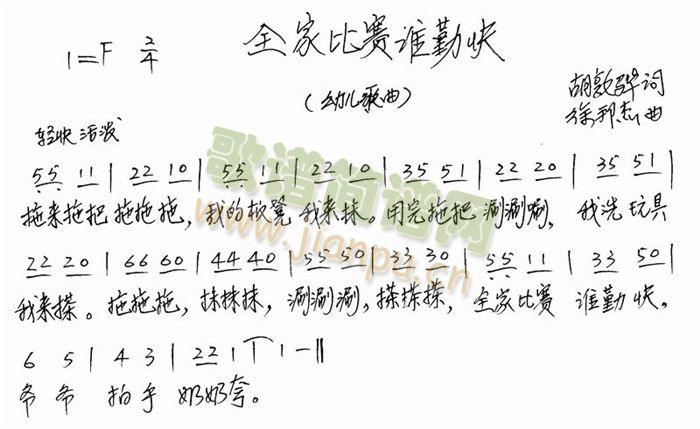 全家比赛谁勤快
1=F 2/4
(幼儿歌曲)
胡敦骅词
徐邦杰曲
轻快 活泼
55 11 | 22 10 | 55 11 | 22 10 | 35 51 | 22 20 | 35 51 |
拖来拖把 拖拖拖, 我的板凳 我来抹。用完拖把 涮涮涮, 我洗玩具
22 20 | 66 60 | 44 40 | 55 50 | 33 30 | 55 11 | 33 50 |
我来搽。拖拖拖, 抹抹抹, 涮涮涮, 搽搽搽, 全家比赛 谁勤快,
6 5 | 4 3 | 22 1 | 1 - ||
爷爷 拍手 奶奶夸。
歌谱简谱网
www.jianpu.cn